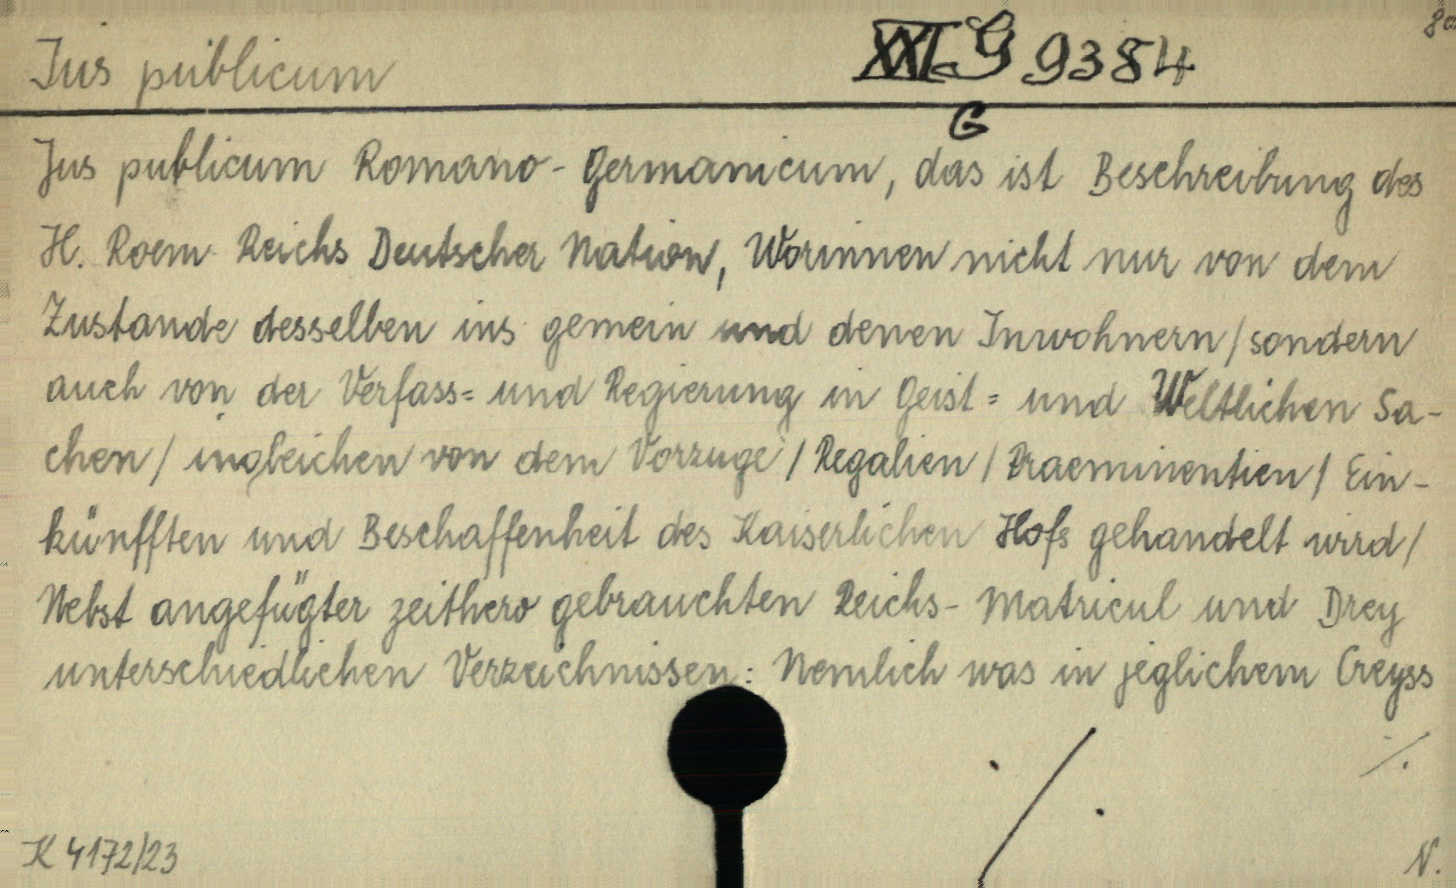 Jus publicum
XXI G 9384
G
Jus publicum Romano-Germanicum, das ist Beschreibung des
H. Roem Reichs Deutscher Nation, Worinnen nicht nur von dem
Zustande desselben ins gemein und denen Inwohnern/sondern
auch von der Verfass= und Regierung in Geist= und Weltlichen Sa-
chen/ ingleichen von dem Vorzuge/Regalien/Praeminentien/Ein-
künfften und Beschaffenheit des Kaiserlichen Hofs gehandelt wird/
Nebst angefügter zeithero gebrauchten Reichs-Matricul und Drey
unterschiedlichen Verzeichnissen: Nemlich was in jeglichem Creyss
./.
K 4172/23
N.